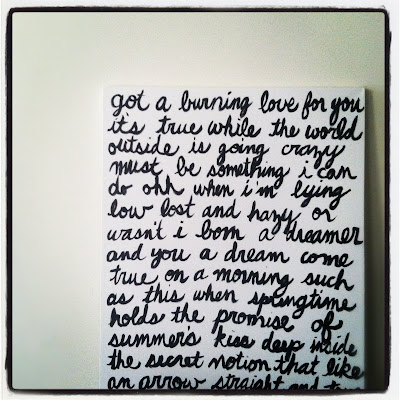 got a burning love for you
it's true while the world
outside is going crazy
must be something i can
do ohh when i'm lying
low lost and hazy or
wasn't i born a dreamer
and you a dream come
true on a morning such
as this when springtime
holds the promise of
summer's kiss deep inside
the secret notion that like
an arrow straight and